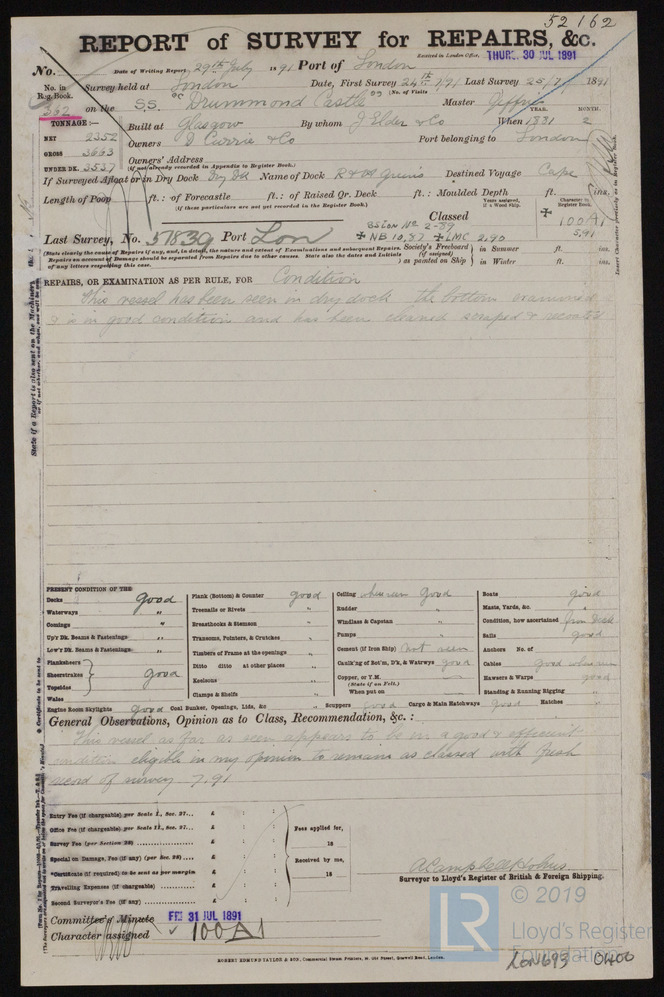 52162
REPORT of SURVEY for REPAIRS, &c.
Received in London Office, THURS. 30 JUL 1891
No. Date of Writing Report 29th July 1891 Port of London
No. in Reg. Book. Survey held at London Date, First Survey 24th/7/91 Last Survey 25/7/1891
(No. of Visits
362 on the S.S. "Drummond Castle" Master
YEAR. MONTH.
TONNAGE:— Built at Glasgow By whom J Elder & Co When 1881 2
NET 2352 Owners D Currie & Co Port belonging to London
GROSS 3663 Owners' Address
UNDER DK. 3537 (If not already recorded in Appendix to Register Book.)
If Surveyed Afloat or in Dry Dock Dry Dk Name of Dock R & H Green's Destined Voyage Cape
Length of Poop ft.: of Forecastle ft.: of Raised Qr. Deck ft.: Moulded Depth ft. ins.
(If these particulars are not yet recorded in the Register Book.)
Years assigned, if a Wood Ship. Character in Register Book.
Classed 100A1
5,91
Last Survey, No. 57839 Port Lon
NB 10,87 LMC 2,90
(State clearly the cause of Repairs if any, and, in detail, the nature and extent of Examinations and subsequent Repairs.
Repairs on account of Damage should be separated from Repairs due to other causes. State also the dates and Initials
of any letters respecting this case.
Society's Freeboard (if assigned) as painted on Ship in Summer ft. ins.
in Winter ft. ins.
REPAIRS, OR EXAMINATION AS PER RULE, FOR Condition
This vessel has been seen in dry dock the bottom examined
& is in good condition and has been cleaned scraped & recoated
PRESENT CONDITION OF THE
Decks good
Waterways "
Comings "
Up'r Dk. Beams & Fastenings "
Low'r Dk. Beams & Fastenings "
Planksheers
Sheerstrakes good
Topsides
Wales
Engine Room Skylights good
Plank (Bottom) & Counter good
Treenails or Rivets "
Breasthooks & Stemson "
Transoms, Pointers, & Crutches "
Timbers of Frame at the openings "
Ditto ditto at other places "
Keelsons "
Clamps & Shelfs "
Coal Bunker, Openings, Lids, &c "
Ceiling where seen good
Rudder "
Windlass & Capstan "
Pumps "
Cement (if Iron Ship) not seen
Caulk'ng of Bot'm, D'k, & Watrwys good
Copper, or Y.M.
(State if on Felt.)
When put on
Scuppers good Cargo & Main Hatchways good Hatches "
Boats good
Masts, Yards, &c. "
Condition, how ascertained from Deck
Sails good
Anchors No. of
Cables good where seen
Hawsers & Warps good
Standing & Running Rigging "
General Observations, Opinion as to Class, Recommendation, &c.:
This vessel as far as seen appears to be in a good & efficient
condition eligible in my opinion to remain as classed with fresh
record of survey 7,91
Entry Fee (if chargeable) per Scale I., Sec. 27... £ : :
Office Fee (if chargeable) per Scale II., Sec. 27... £ : :
Survey Fee (per Section 28) £ : :
Special on Damage, Fee (if any) (per Sec. 28).... £ : :
*Certificate (if required) to be sent as per margin £ : :
Travelling Expenses (if chargeable) £ : :
Second Surveyor's Fee (if any) £ : :
Fees applied for,
18
Received by me,
18
A Campbell Holms
Surveyor to Lloyd's Register of British & Foreign Shipping.
Committee's Minute FRI 31 JUL 1891
Character assigned 100A1
ROBERT EDMUND TAYLOR & SON, Commercial Steam Printers, 19, Old Street, Goswell Road, London.
© 2019
LR Lloyd's Register
Foundation
LON693 - 0400